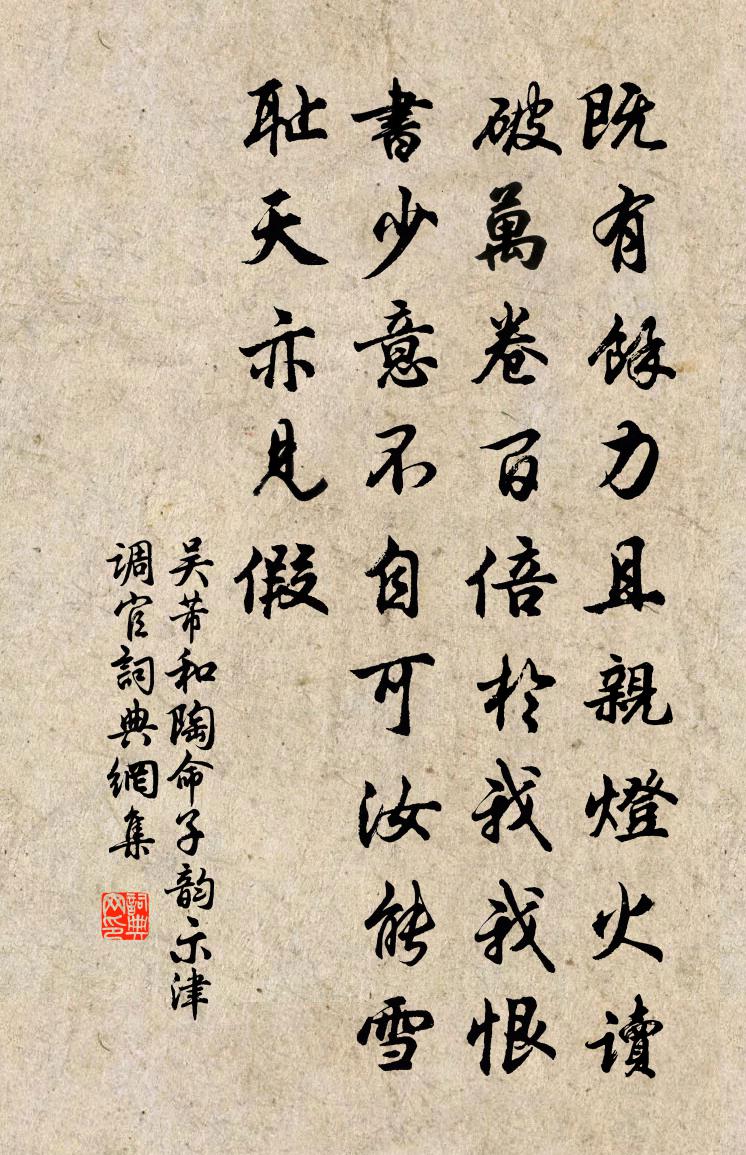 既有餘力且親燈火讀
破萬卷百倍於我我恨
書少意不自可汝能雪
耻天亦見假
吴芾和陶命子韵示津
调官詞典網集
詞典网印